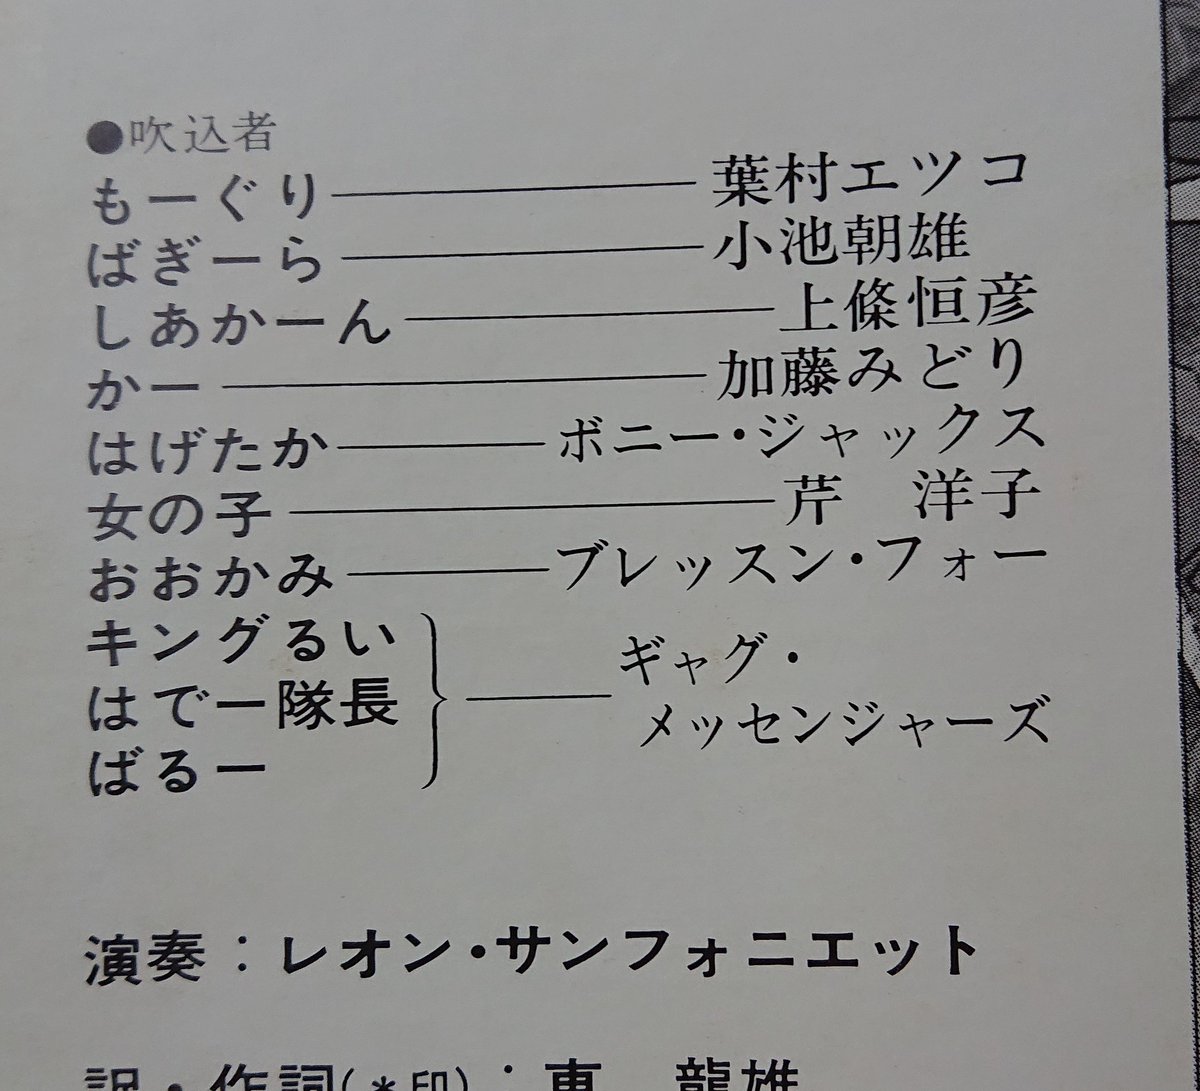 ●吹込者
もーぐり――――葉村エツコ
ばぎーら――――小池朝雄
しあかーん――――上條恒彦
かー――――加藤みどり
はげたか――――ボニー・ジャックス
女の子――――芹　洋子
おおかみ――――ブレッスン・フォー
キングるい
はでー隊長
ばるー
}――――ギャグ・
メッセンジャーズ
演奏：レオン・サンフォニエット
訳・作詞(＊印)：東　龍雄